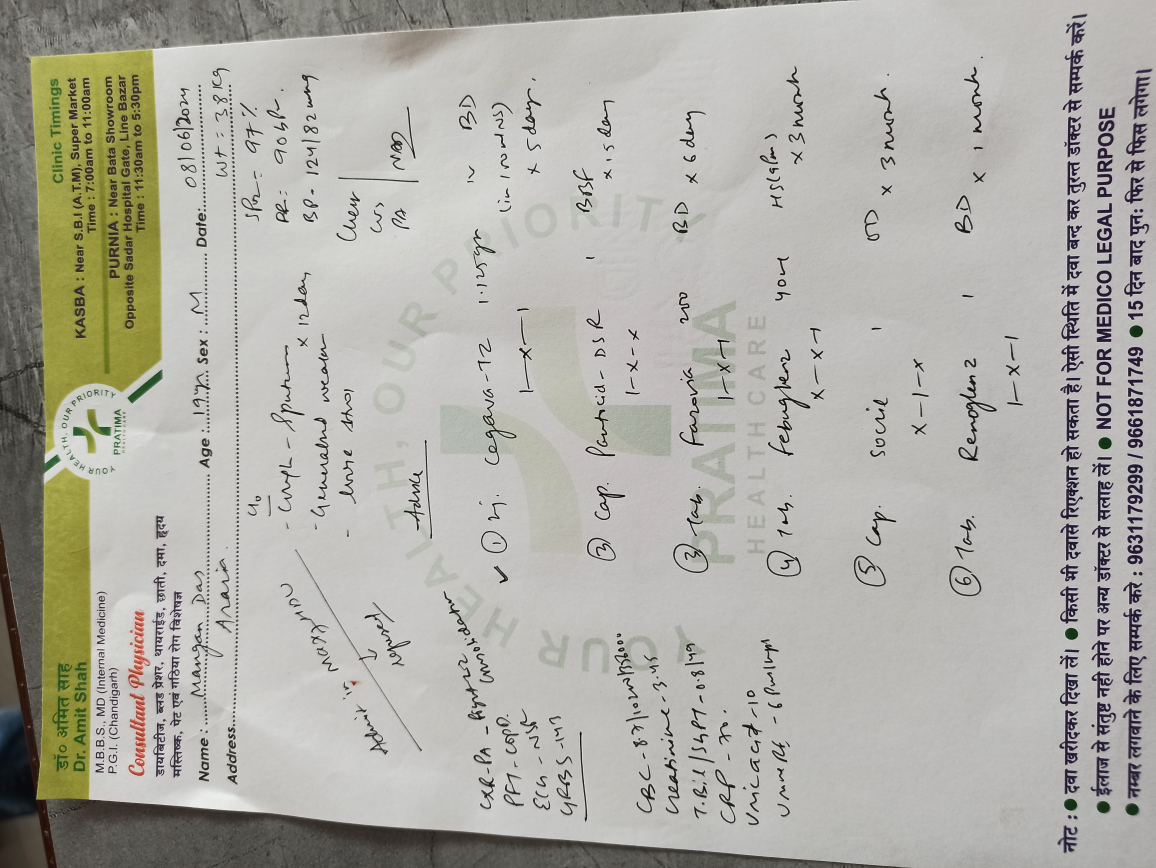 डॉ० अमित साह
Dr. Amit Shah
M.B.B.S., MD (Internal Medicine)
P.G.I. (Chandigarh)
Consultant Physician
डायबिटीज, ब्लड प्रेशर, थायराईड, छाती, दमा, हृदय
मस्तिष्क, पेट एवं गठिया रोग विशेषज्ञ
YOUR HEALTH, OUR PRIORITY
PRATIMA
Clinic Timings
KASBA : Near S.B.I (A.T.M), Super Market
Time : 7:00am to 11:00am
PURNIA : Near Bata Showroom
Opposite Sadar Hospital Gate, Line Bazar
Time : 11:30am to 5:30pm
Name : Mangan Das Age : Sex : M Date: 08/06/2024
Address. Araria. Wt = 38 Kg
C/o
- Cough - Sputum
- Generalised weakness x 12 day
- loose stool
SPO2 = 97 %
PR = 90 bpm
BP - 124/82 mmhg
Chest
CVS
PA
NAD
Admit in
refused
Advice
CXR-PA - Right consolidation
PFT - COPD
ECG - NSR
GRBS - 147
CRP - 70.
Uric acid - 10
① Inj. Cegava-TZ 1.125gm IV BD
1-x-1 (in 100ml NS) x 5 day.
② Cap. Panticid-DSR 1 BBF
1-x-x x 15 day
③ Tab. Farovia 200 BD x 6 day
1-x-1
④ Tab. 40mg HS(9pm)
x-x-1 x 3 month
⑤ Cap. Socril 1 OD
x-1-x x 3 month
⑥ Tab. 1 BD
1-x-1 x 1 month.
YOUR HEALTH, OUR PRIORITY
PRATIMA
HEALTH CARE
नोट : ● दवा खरीदकर दिखा लें। ● किसी भी दवासे रिएक्शन हो सकता है। ऐसी स्थिति में दवा बन्द कर तुरन्त डॉक्टर से सम्पर्क करें।
● ईलाज से संतुष्ट नही होने पर अन्य डॉक्टर से सलाह लें। ● NOT FOR MEDICO LEGAL PURPOSE
● नम्बर लगवाने के लिए सम्पर्क करे : 9631179299 / 9661871749 ● 15 दिन बाद पुन: फिर से फिस लगेगा।